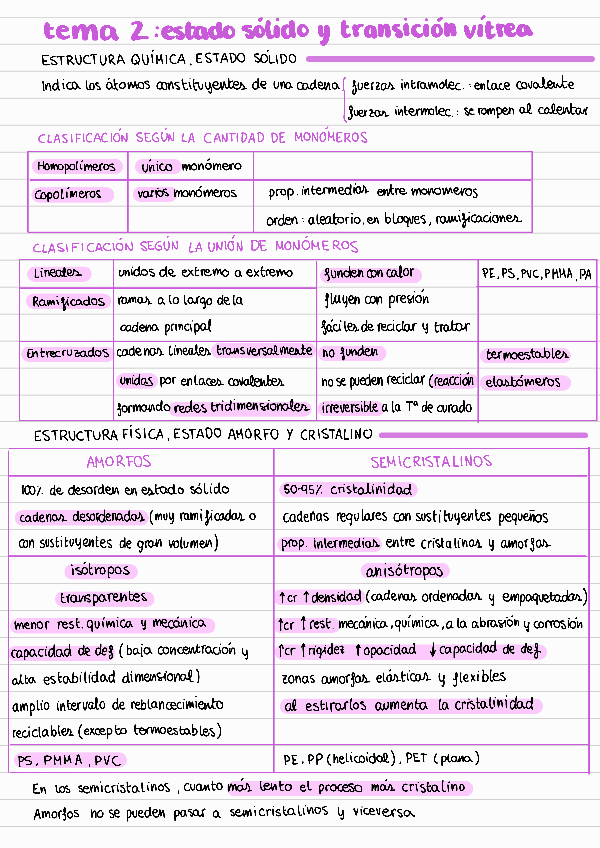 tema 2: estado sólido y transición vítrea
ESTRUCTURA QUÍMICA, ESTADO SÓLIDO
Indica los átomos constituyentes de una cadena
fuerzas intramolec.: enlace covalente
fuerzas intermolec.: se rompen al calentar
CLASIFICACIÓN SEGÚN LA CANTIDAD DE MONÓMEROS
Homopolímeros único monómero
Copolímeros varios monómeros prop. intermedias entre monomeros
orden: aleatorio, en bloques, ramificaciones
CLASIFICACIÓN SEGÚN LA UNIÓN DE MONÓMEROS
Lineales unidos de extremo a extremo funden con calor PE, PS, PVC, PMMA, PA
Ramificados ramas a lo largo de la fluyen con presión
cadena principal fáciles de reciclar y tratar
Entrecruzados cadenas lineales transversalmente no funden termoestables
unidas por enlaces covalentes no se pueden reciclar (reacción elastómeros
formando redes tridimensionales irreversible a la Tª de curado
ESTRUCTURA FÍSICA, ESTADO AMORFO Y CRISTALINO
AMORFOS
100% de desorden en estado sólido
cadenas desordenadas (muy ramificadas o
con sustituyentes de gran volumen)
isótropos
transparentes
menor rest. química y mecánica
capacidad de def (baja concentración y
alta estabilidad dimensional)
amplio intervalo de reblandecimiento
reciclables (excepto termoestables)
PS, PMMA, PVC
SEMICRISTALINOS
50-95% cristalinidad
cadenas regulares con sustituyentes pequeños
prop. intermedias entre cristalinas y amorfas
anisótropos
↑cr ↑densidad (cadenas ordenadas y empaquetadas)
↑cr ↑rest. mecánica, química, a la abrasión y corrosión
↑cr ↑rigidez ↑opacidad ↓capacidad de def
zonas amorfas elásticas y flexibles
al estirarlos aumenta la cristalinidad
PE, PP (helicoidal), PET (plana)
En los semicristalinos, cuanto más lento el proceso más cristalino
Amorfos no se pueden pasar a semicristalinos y viceversa